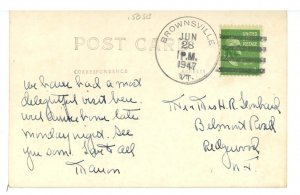 BROWNSVILLE
JUN
28
1 P.M.
1947
VT.
POST CARD
CORRESPONDENCE
We have had a most
delightful visit here.
will drive home late
Monday night. See
you soon. Love to all
Marion
Mr & Mrs H. R.
Belmont Road
Ridgewood
N.J.
UNITED
POSTAGE